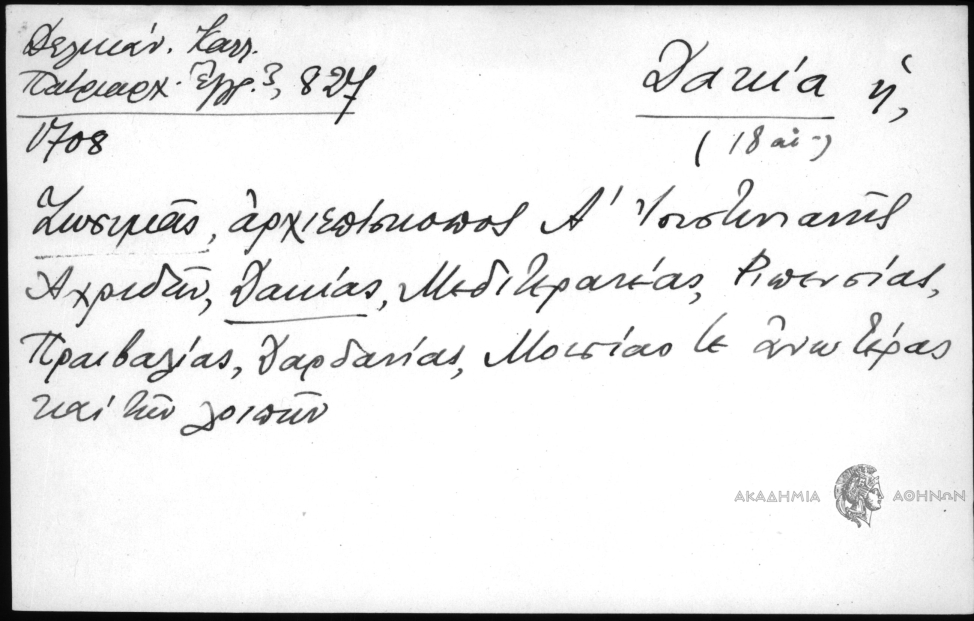 Δελικάν. Καλλ.
Πατριαρχ. Ἔγγρ. 3, 827
1708
Δακία ἡ,
(18 αἰ-)
Ζωσιμᾶς, ἀρχιεπίσκοπος Α' Ἰουστινιανῆς
Ἀχριδῶν, Δακίας, Μεδιτερανέας, Ριπενσίας,
Πραιβαλίας, Δαρδανίας, Μοισίας τε ἀνωτέρας
καὶ τῶν λοιπῶν
ΑΚΑΔΗΜΙΑ ΑΘΗΝΩΝ